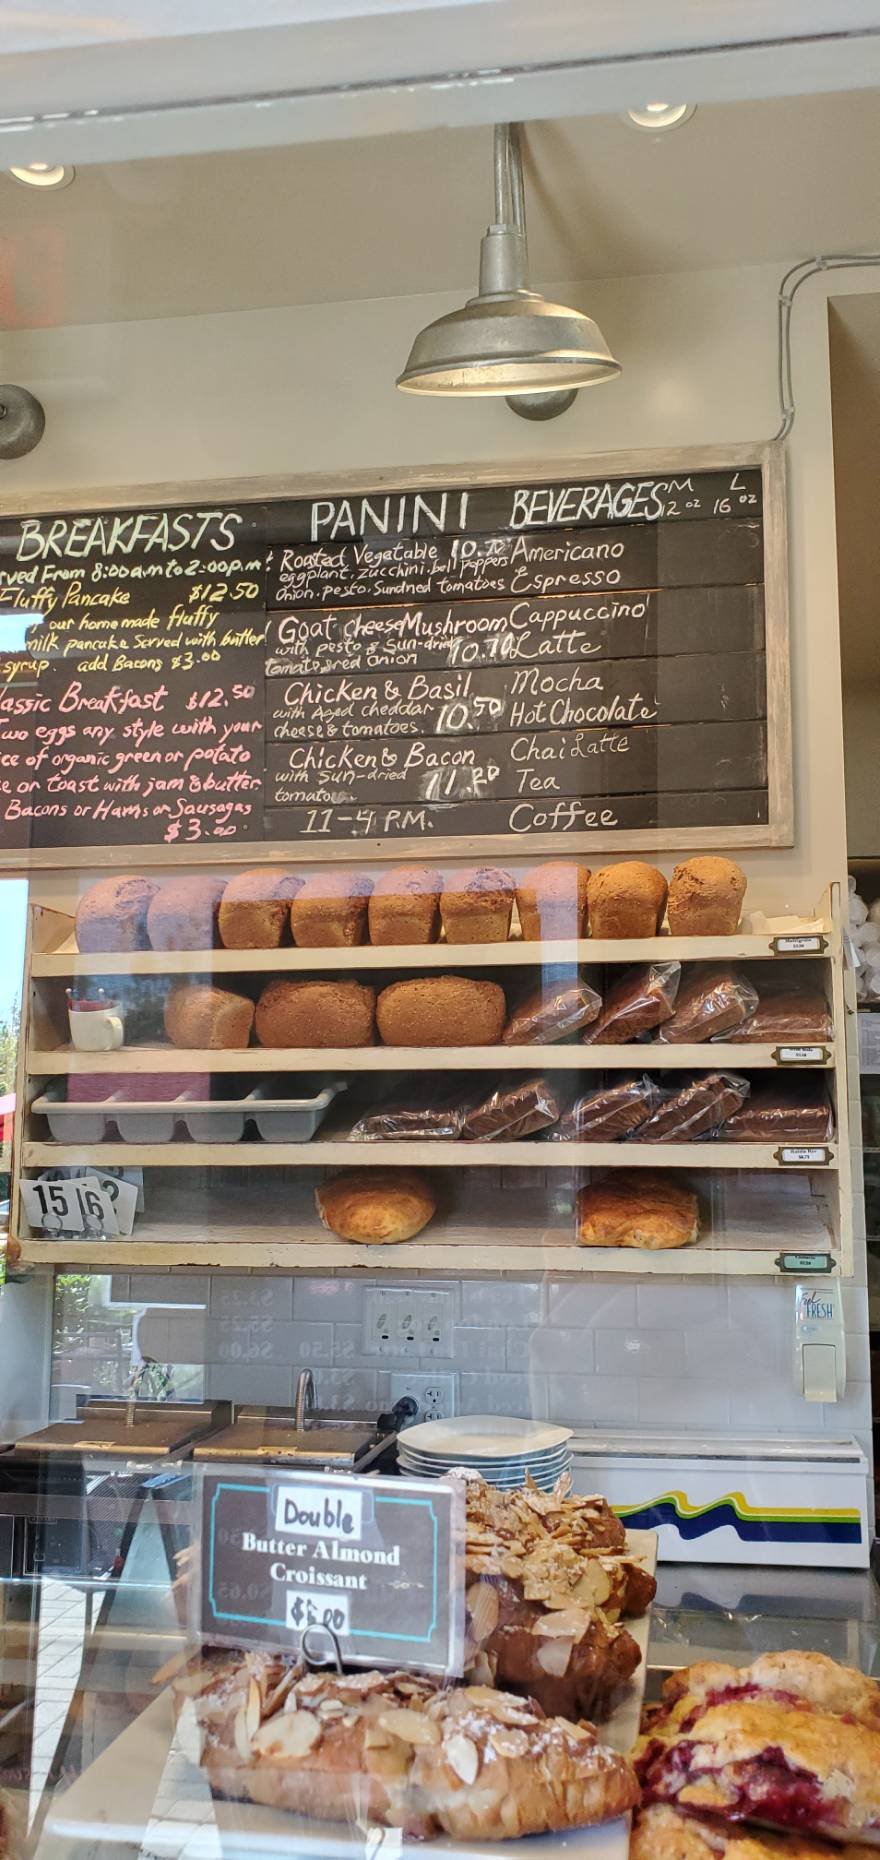 BREAKFASTS
rved From 8:00am to 2:00p.m!
Fluffy Pancake $12.50
our homemade fluffy
milk pancake Served with butter
syrup. add Bacons $3.00
assic Breakfast $12.50
Two eggs any style with your
ice of organic green or potato
e or toast with jam & butter.
Bacons or Hams or Sausagas
$3.00
PANINI
Roasted Vegatable 10.70
eggplant, zucchini, bell peppers
onion, pesto, Sundried tomatoes
Goat cheese Mushroom
with pesto & Sun-dried
tomato, red onion 10.70
Chicken & Basil
with Aged cheddar
cheese & tomatoes. 10.50
Chicken & Bacon
with Sun-dried
tomatoes.
11-4 P.M.
BEVERAGES M L
12 oz 16 oz
Americano
Espresso
Cappuccino
Latte
Mocha
Hot Chocolate
Chai Latte
Tea
Coffee
15 16 ?
FRESH
Double
Butter Almond
Croissant